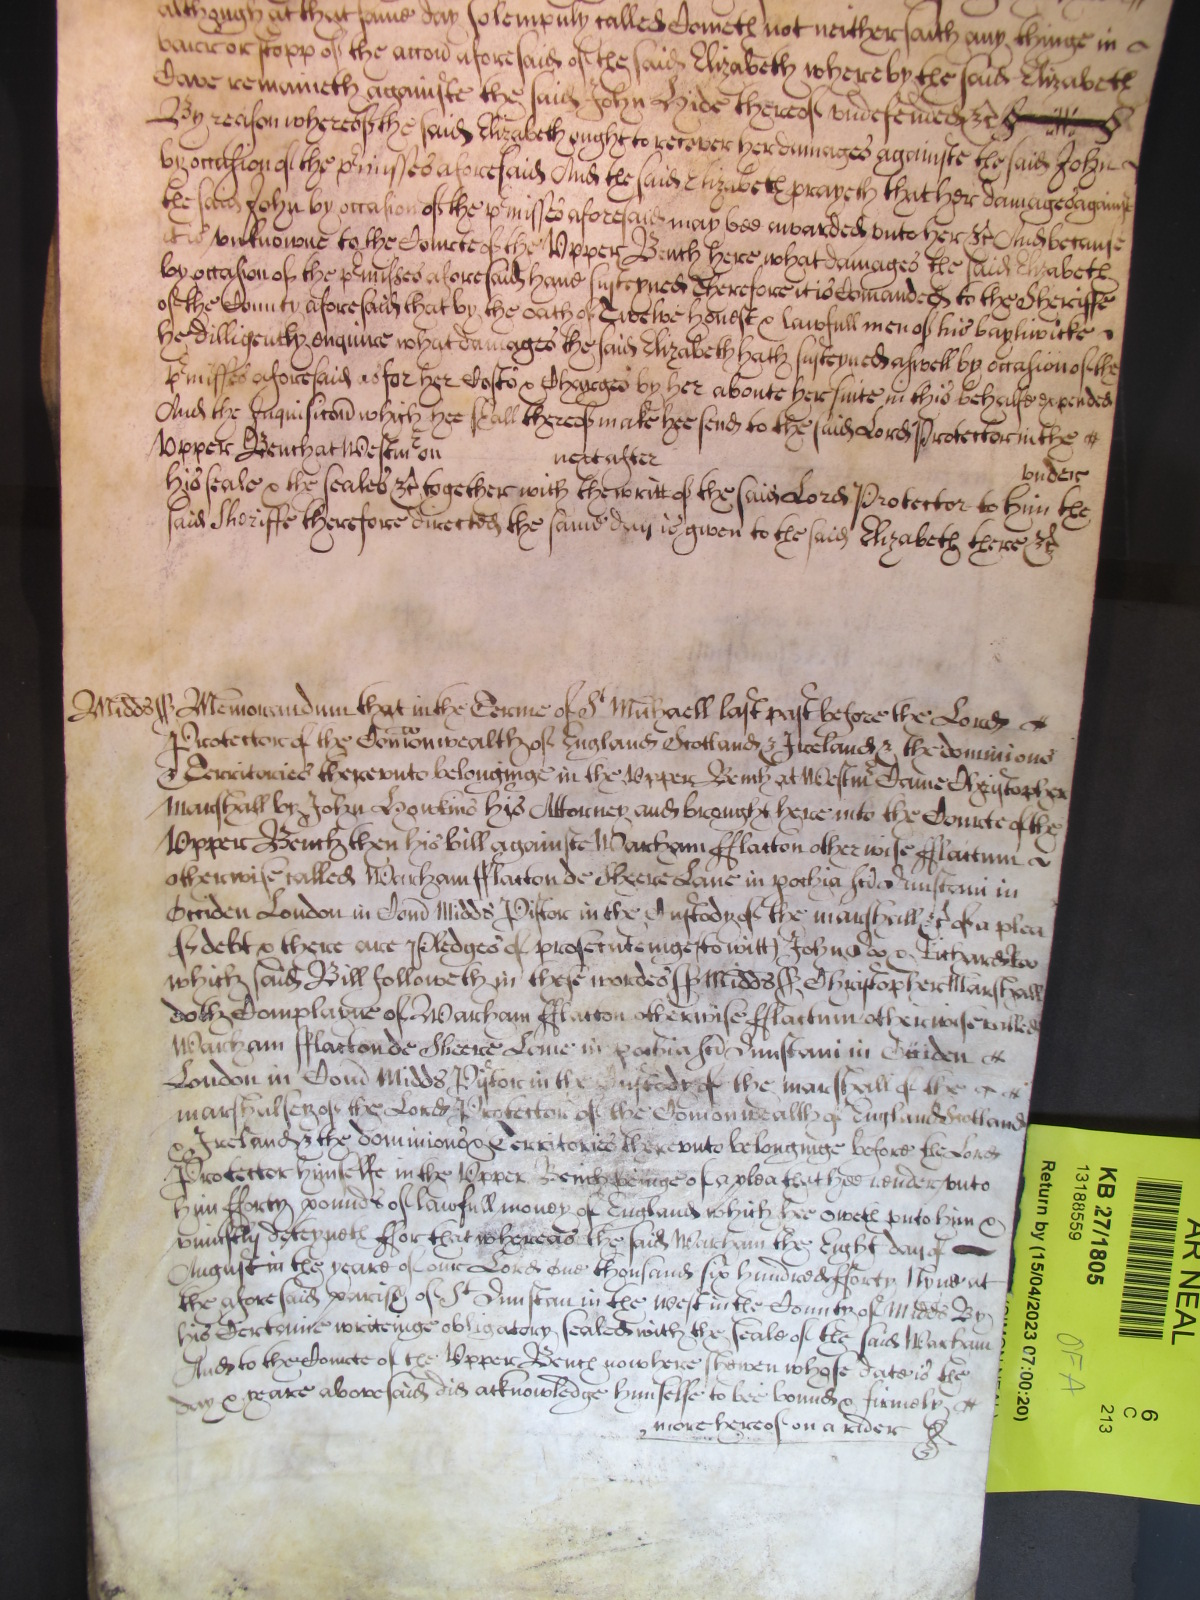 although at that same day solempnly called Cometh not neither saith any thinge in
barr or stopp of the accon aforesaid of the said Elizabeth whereby the said Elizabeth
remaineth againste the said John Hide thereof undefended &c
By reason whereof the said Elizabeth ought to recover her damages againste the said John
by occasion of the pmisses aforesaid And the said Elizabeth prayeth that her damages against
the said John by occasion of the pmisses aforesaid may bee awarded unto her &c And because
it is unknowne to the Courte of the Upper Bench here what damages the said Elizabeth
by occasion of the pmisses aforesaid hane susteyned Therefore it is Comanded to the Sheriffe
of the County aforesaid that by the oath of Twelve honest & lawfull men of his bayliwicke
he dilligently enquire what damages the said Elizabeth hath susteyned aswell by occasion of the
pmisses aforesaid as for her Costs & Charges by her aboute her suite in this behalfe expended
And the Inquisicon which hee shall thereof make hee send to the said Lord Protector in the
Upper Bench at Westmr on next after under
his seale & the seales &c together with the writt of the said Lord Protector to him the
said Sheriffe therefore directed the same day is given to the said Elizabeth there &c
Midds ss Memorandum that in the Terme of St Michaell last past before the Lord
Protector of the Comonwealth of England Scotland & Ireland & the dominions
& Territories thereunto belonginge in the Upper Bench at Westmr Came Christopher
Marshall by John Howkins his Attorney and brought here into the Courte of the
Upper Bench then his bill againste Warham fflatton otherwise fflattum
otherwise called Warham fflatton de Sheere Lane in pochia Sci Dunstani in
Occiden London in Com Midds Pistor in the Custody of the marshall &c of a plea
of debt & there are Pledges of prosecuteinge (to witt) John Doo & Richard Roo
which said Bill followeth in these wordes ss Midds ss Christopher Marshall
doth Complayne of Warham fflatton otherwise fflattum otherwise called
Warham fflatton de Sheere Lane in pochia Sci Dunstani in Occiden
London in Com Midds Pistor in the Custody of the marshall of the
marshalsey of the Lord Protector of the Comonwealth of England Scotland
& Ireland & the dominions & Territories thereunto belonginge before the Lord
Protector himselfe in the Upper Bench beinge of a plea that hee render unto
him fforty pounds of lawfull money of England which hee oweth unto him &
uniustly deteyneth ffor that whereas the said Warham the Eight day of
August in the yeare of our Lord one thousand six hundred fforty Nyne at
the aforesaid parish of St Dunstan in the West in the County of Midds By
his Certaine writeinge obligatory sealed with the seale of the said Warham
And to the Courte of the Upper Bench now here shewen whose date is the
day & yeare abovesaid did acknowledge himselfe to bee bound & firmely
more hereof on a rider
AR NEAL
6
C
213
KB 27/1805
13188559
Return by (15/04/2023 07:00:20)